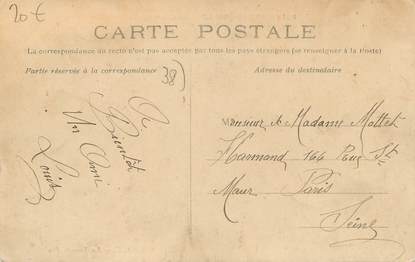 20€
CARTE POSTALE
La correspondance au recto n'est pas acceptée par tous les pays étrangers (se renseigner à la Poste)
Partie réservée à la correspondance
Adresse du destinataire
38)
A
Bientôt
Un Ami
Louis
Monsieur & Madame Mottet
Harmand 164 Rue St
Maur Paris
Seine